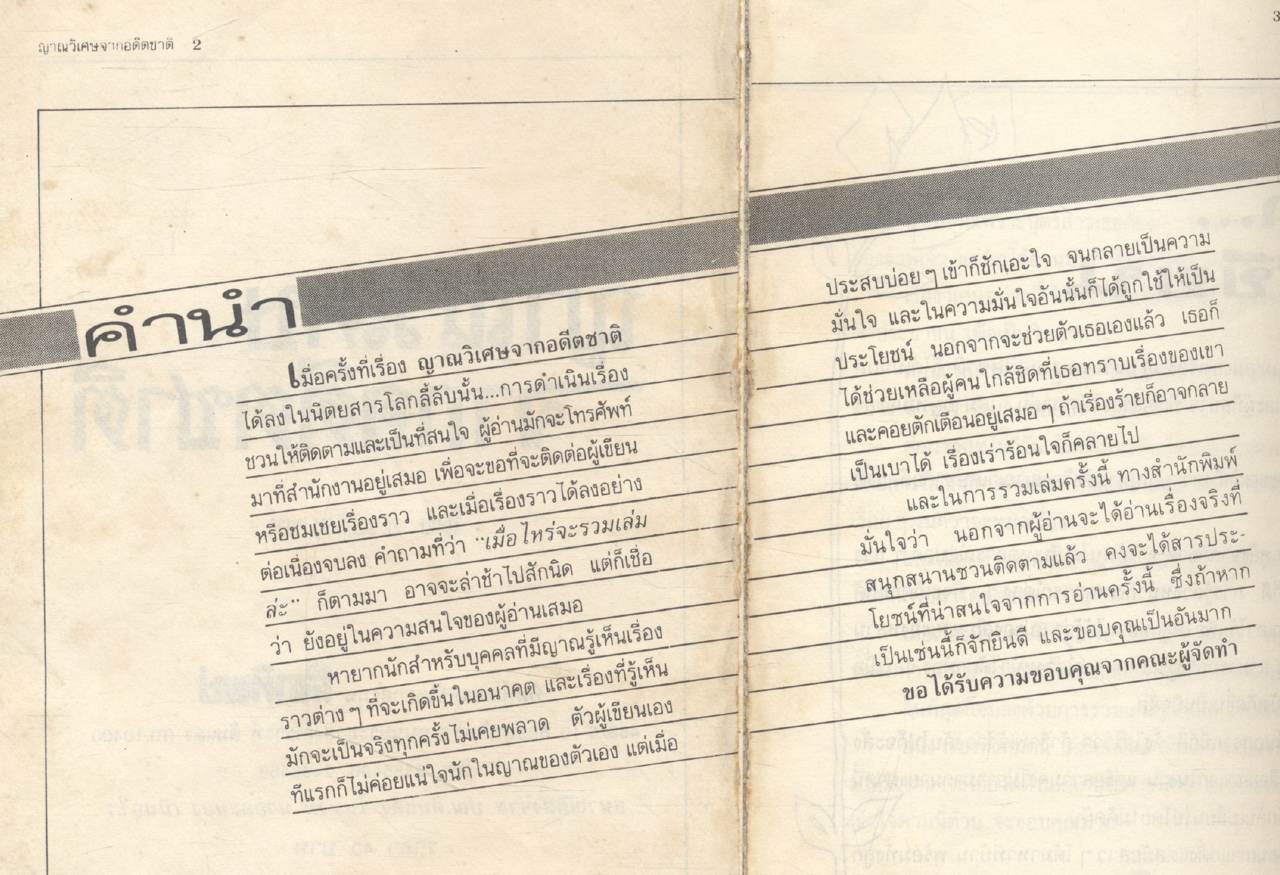 ญาณวิเศษจากอดีตชาติ 2
คำนำ
เมื่อครั้งที่เรื่อง ญาณวิเศษจากอดีตชาติ
ได้ลงในนิตยสารโลกลี้ลับนั้น...การดำเนินเรื่อง
ชวนให้ติดตามและเป็นที่สนใจ ผู้อ่านมักจะโทรศัพท์
มาที่สำนักงานอยู่เสมอ เพื่อจะขอที่จะติดต่อผู้เขียน
หรือชมเชยเรื่องราว และเมื่อเรื่องราวได้ลงอย่าง
ต่อเนื่องจบลง คำถามที่ว่า "เมื่อไหร่จะรวมเล่ม
ล่ะ" ก็ตามมา อาจจะล่าช้าไปสักนิด แต่ก็เชื่อ
ว่า ยังอยู่ในความสนใจของผู้อ่านเสมอ
หายากนักสำหรับบุคคลที่มีญาณรู้เห็นเรื่อง
ราวต่าง ๆ ที่จะเกิดขึ้นในอนาคต และเรื่องที่รู้เห็น
มักจะเป็นจริงทุกครั้งไม่เคยพลาด ตัวผู้เขียนเอง
ทีแรกก็ไม่ค่อยแน่ใจนักในญาณของตัวเอง แต่เมื่อ
3
ประสบบ่อย ๆ เข้าก็ชักเอะใจ จนกลายเป็นความ
มั่นใจ และในความมั่นใจอันนั้นก็ได้ถูกใช้ให้เป็น
ประโยชน์ นอกจากจะช่วยตัวเธอเองแล้ว เธอก็
ได้ช่วยเหลือผู้คนใกล้ชิดที่เธอทราบเรื่องของเขา
และคอยตักเตือนอยู่เสมอ ๆ ถ้าเรื่องร้ายก็อาจกลาย
เป็นเบาได้ เรื่องเร่าร้อนใจก็คลายไป
และในการรวมเล่มครั้งนี้ ทางสำนักพิมพ์
มั่นใจว่า นอกจากผู้อ่านจะได้อ่านเรื่องจริงที่
สนุกสนานชวนติดตามแล้ว คงจะได้สารประ-
โยชน์ที่น่าสนใจจากการอ่านครั้งนี้ ซึ่งถ้าหาก
เป็นเช่นนี้ก็จักยินดี และขอบคุณเป็นอันมาก
ขอได้รับความขอบคุณจากคณะผู้จัดทำ